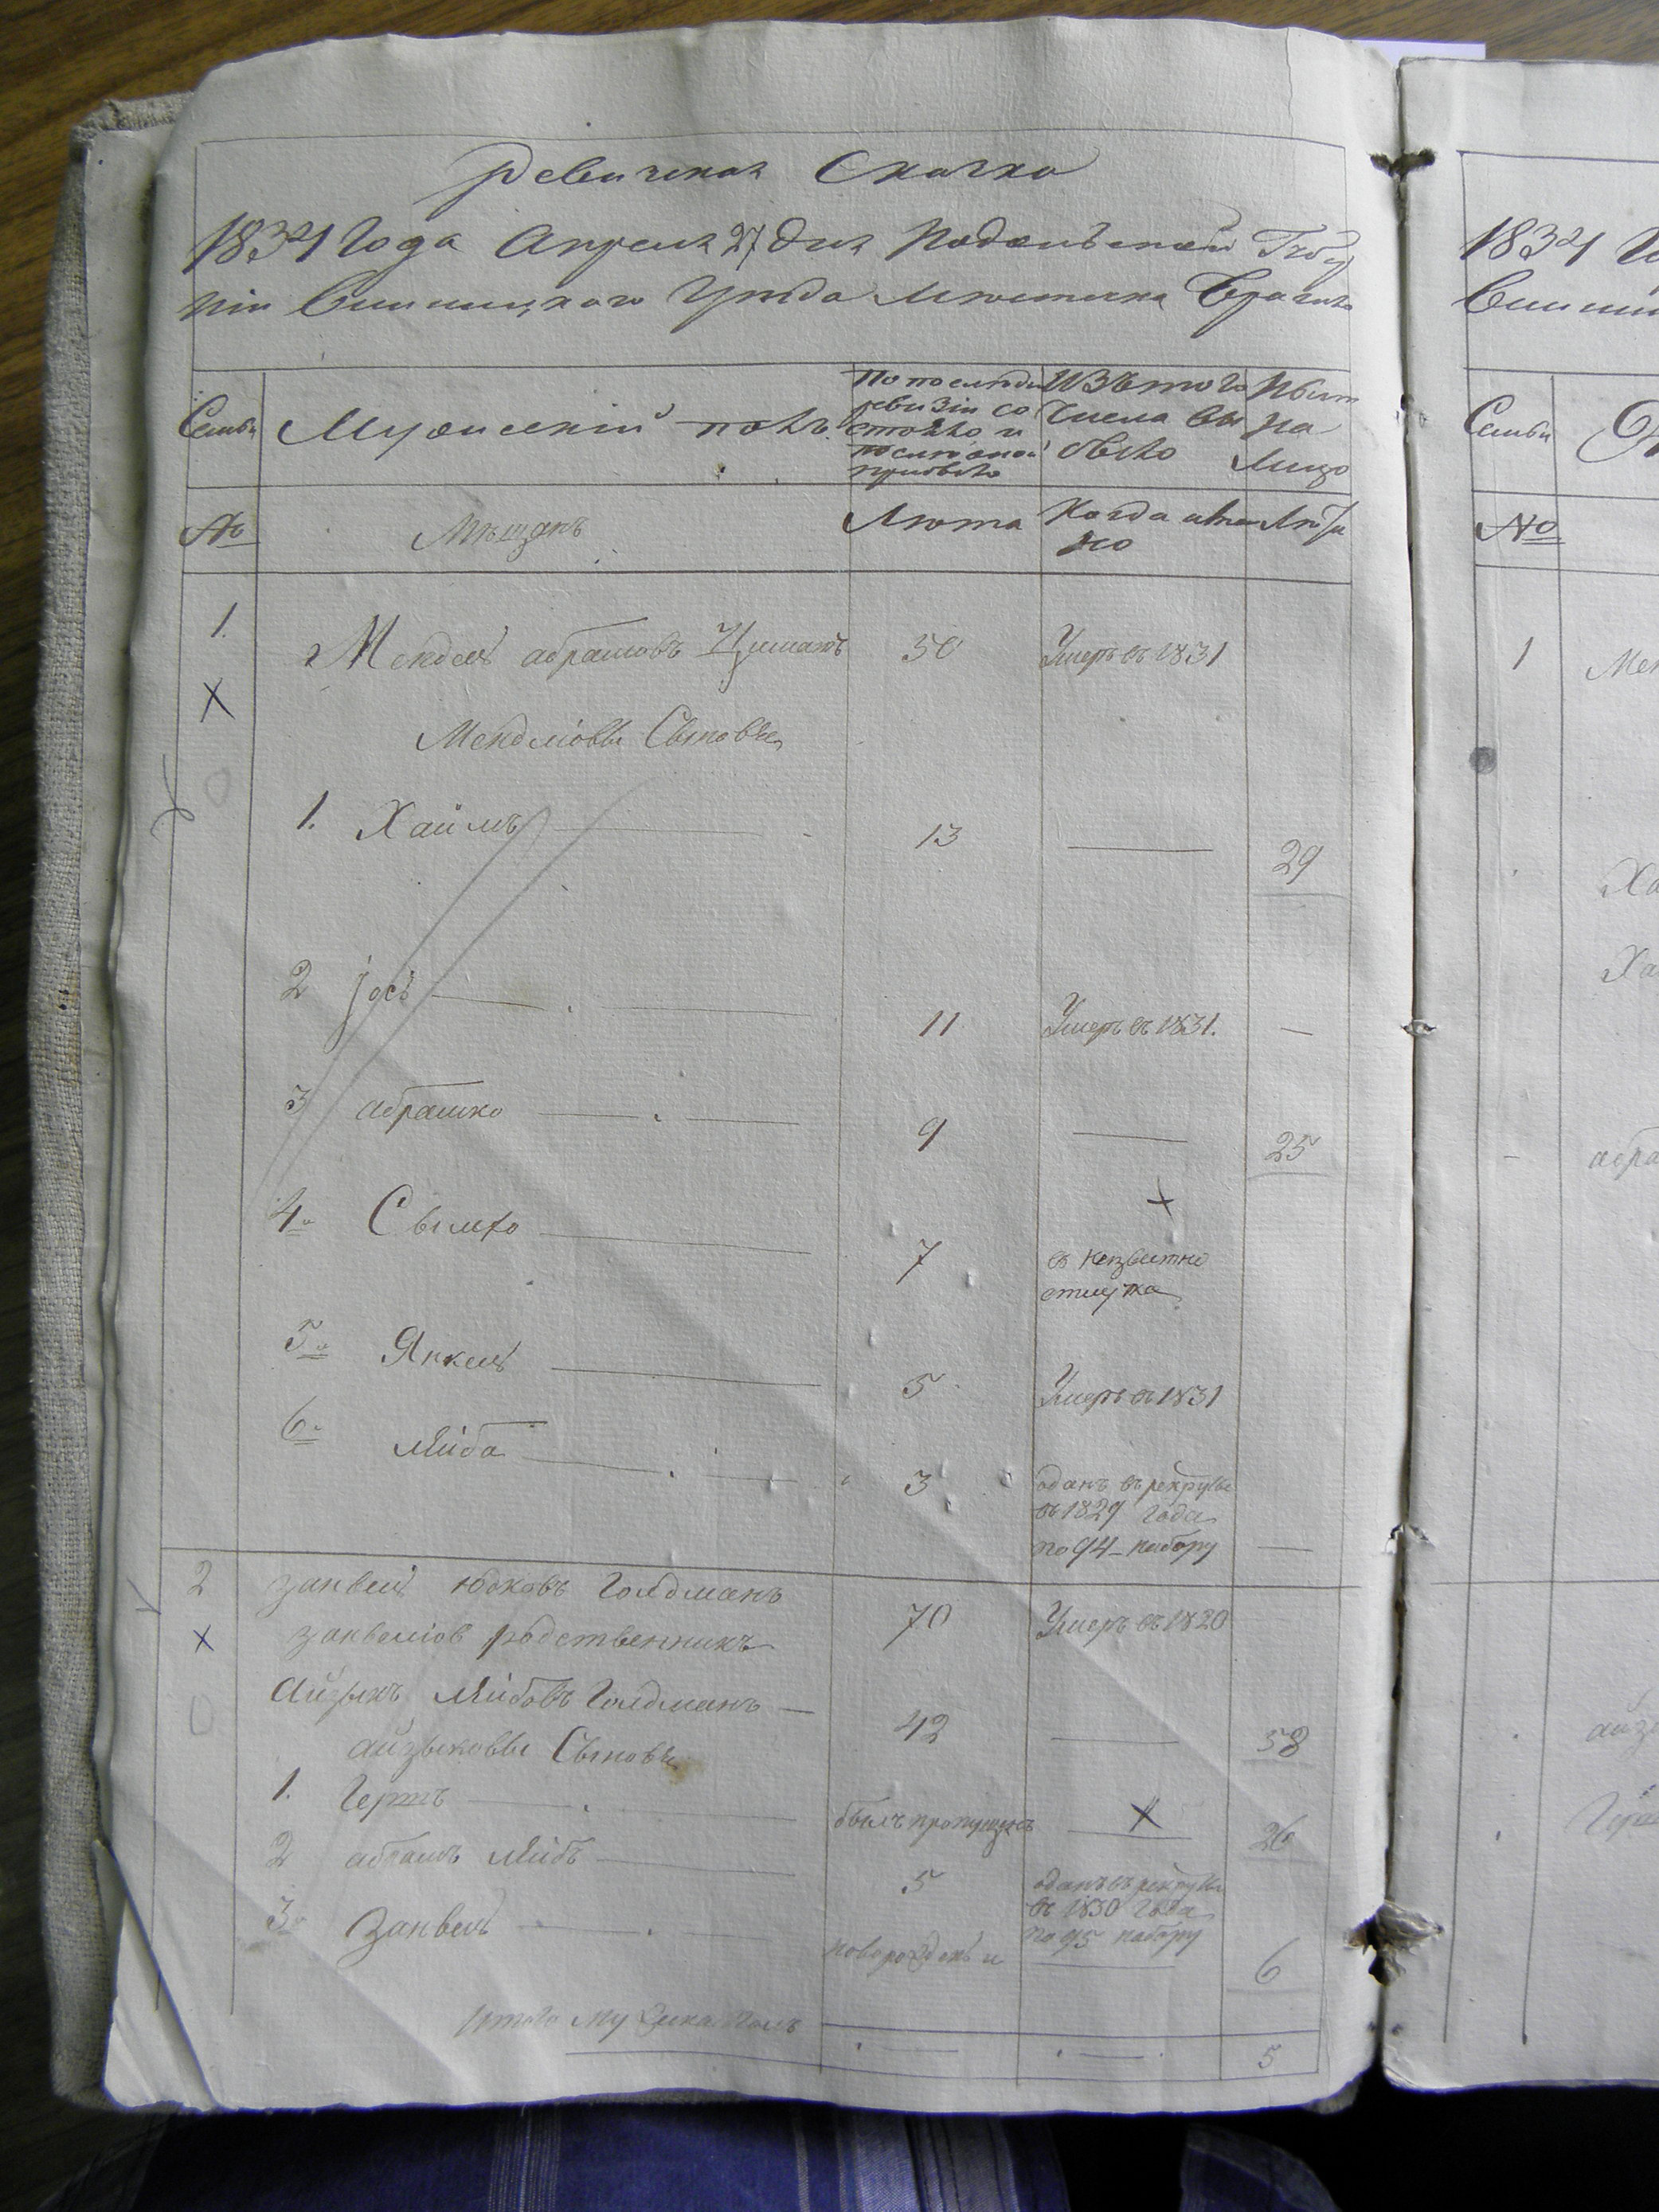 Ревизская Сказка
1834 Года Апреля 27 дня Подольской Губер
ніи Винницкаго Уезда Местечка Браилова
Семьи Мужескій полъ По последней ревизіи состояло и после оной прибыло Изъ того числа выбыло Ныне на лицо
№ Мещанъ Лета Когда имянно Лета
1. Мендель Абрамовъ 50 Умеръ въ 1831
Менделіовы Сыновья
1. Хаимъ 13 — 29
2 Іось 11 Умеръ въ 1831. —
3 абрашко 9 — 25
4. Сымхо 7 въ неизвестно
отлучка
5. Янкель 5 Умеръ въ 1831
6. Лейба 3 оданъ въ рекруты
въ 1829 Года
по 94 набору —
2 Занвель Голдманъ 70 Умеръ въ 1820
Занвеліов родственникъ
Айзыкъ Лейбовъ Голдманъ — 42 — 58
айзыковы Сыновья
1. Гершъ былъ пропущенъ — 26
2 абрамъ Лейбъ 5 оданъ въ рекруты
въ 1830 Года
по 95 набору
3. Занвель новорожденъ и — 6
Итого Мужеска Полъ 5
1834
Семьи
№
1